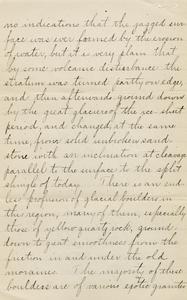 no indications that the jagged sur-
face was ever formed by the erosion
of water, but it is very plain that
by some volcanic disturbance the
stratum was turned partly on edge
and then afterwards ground down
by the great glaciers of the ice-drift
period, and changed, at the same
time, from solid unbroken sand-
stone with an inclination at cleavage
parallel to the surface to the split
shingle of today. There is an end-
less profusion of glacial boulders in
this region, many of them, especially
those of yellow quartz rock, ground
down to great smoothness from the
friction in and under the old
moraines. The majority of these
boulders are of various granites